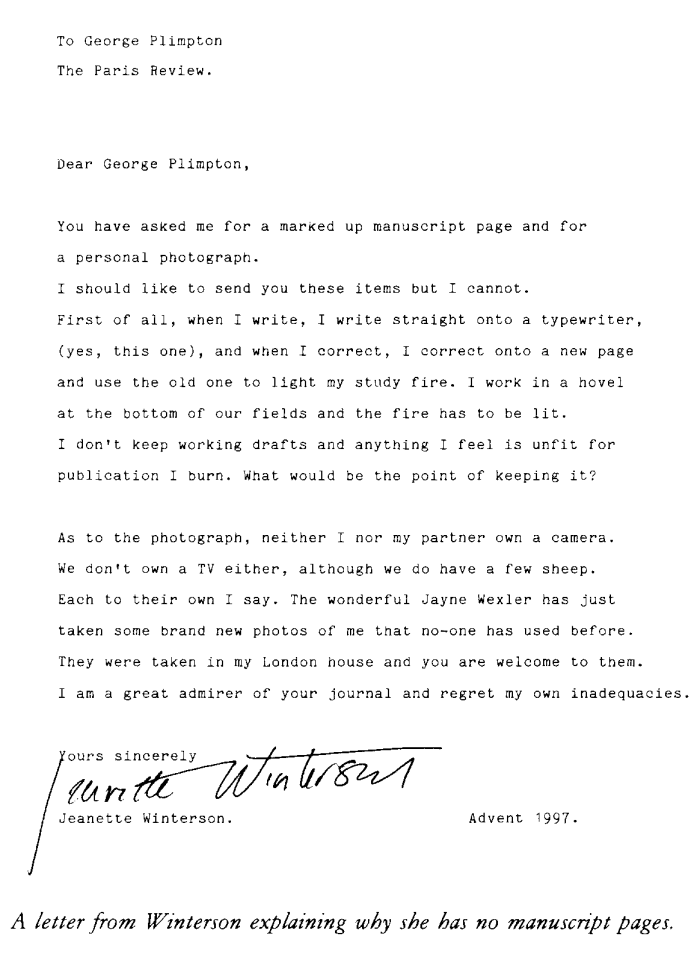 To George Plimpton
The Paris Review.
Dear George Plimpton,
You have asked me for a marked up manuscript page and for
a personal photograph.
I should like to send you these items but I cannot.
First of all, when I write, I write straight onto a typewriter,
(yes, this one), and when I correct, I correct onto a new page
and use the old one to light my study fire. I work in a hovel
at the bottom of our fields and the fire has to be lit.
I don't keep working drafts and anything I feel is unfit for
publication I burn. What would be the point of keeping it?
As to the photograph, neither I nor my partner own a camera.
We don't own a TV either, although we do have a few sheep.
Each to their own I say. The wonderful Jayne Wexler has just
taken some brand new photos of me that no-one has used before.
They were taken in my London house and you are welcome to them.
I am a great admirer of your journal and regret my own inadequacies.
Yours sincerely
Jeanette Winterson
Jeanette Winterson. Advent 1997.
A letter from Winterson explaining why she has no manuscript pages.